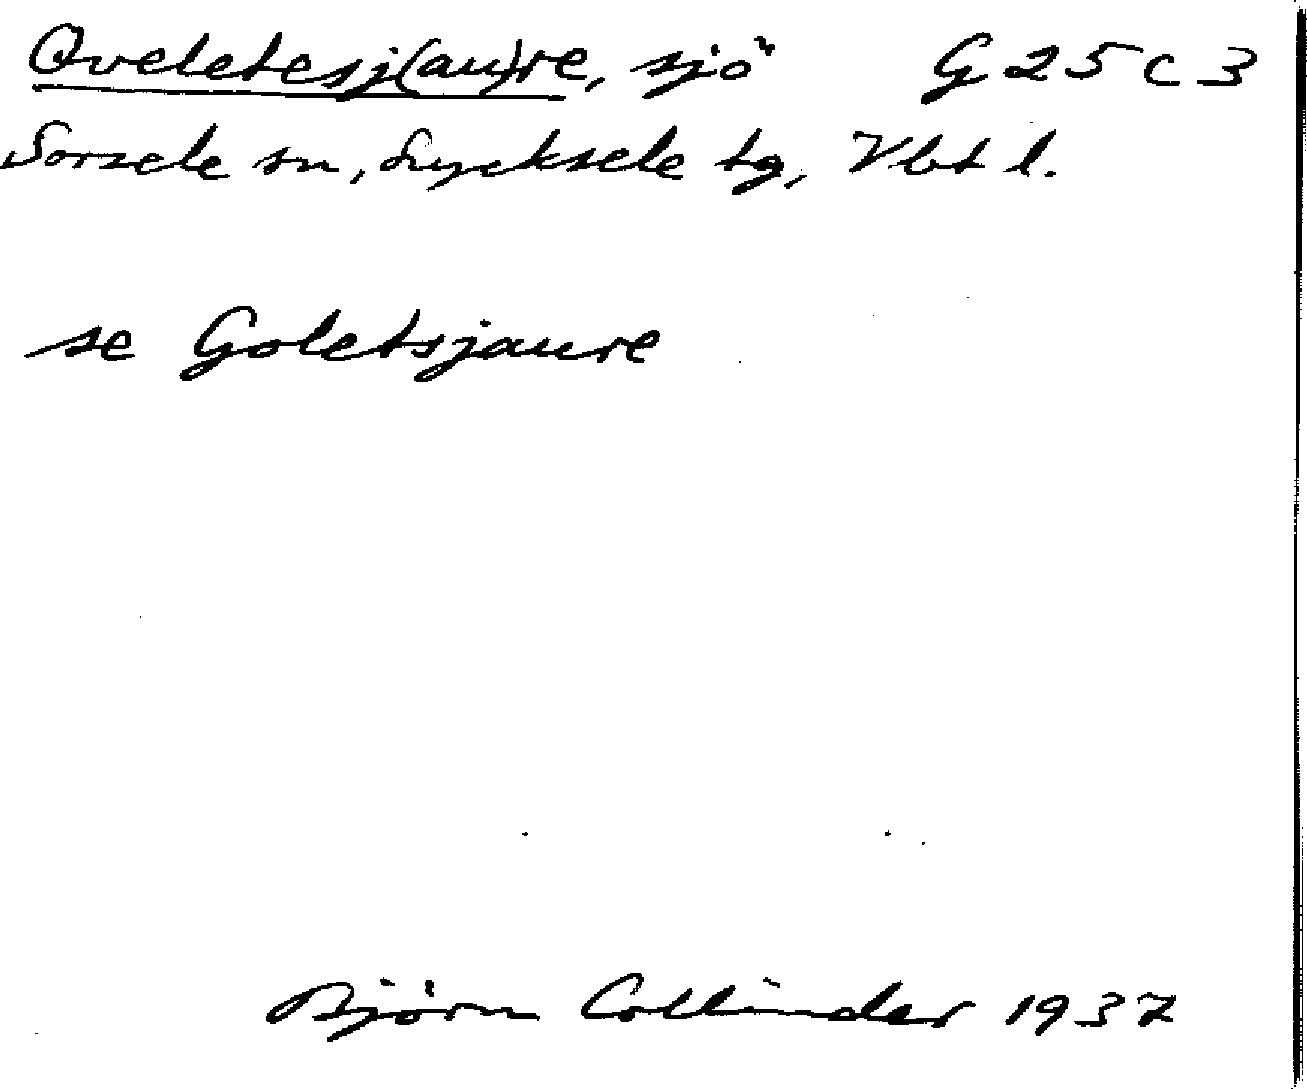 Qveletesj(au)re, sjö G 25 C 3
Sorsele sn, Lycksele tg, Vbt l.
se Goletsjaure
Björn Collinder 1937